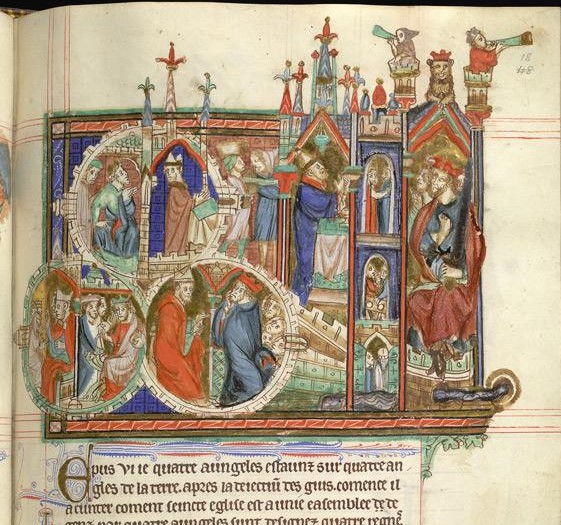 18
Epus vi ie quatre aungeles estaunz sur quatre an
gles de la terre. apres la des gius. comence il
coment seincte eglise est aunie easemblee de
quatre aungeles sunt designez quatre